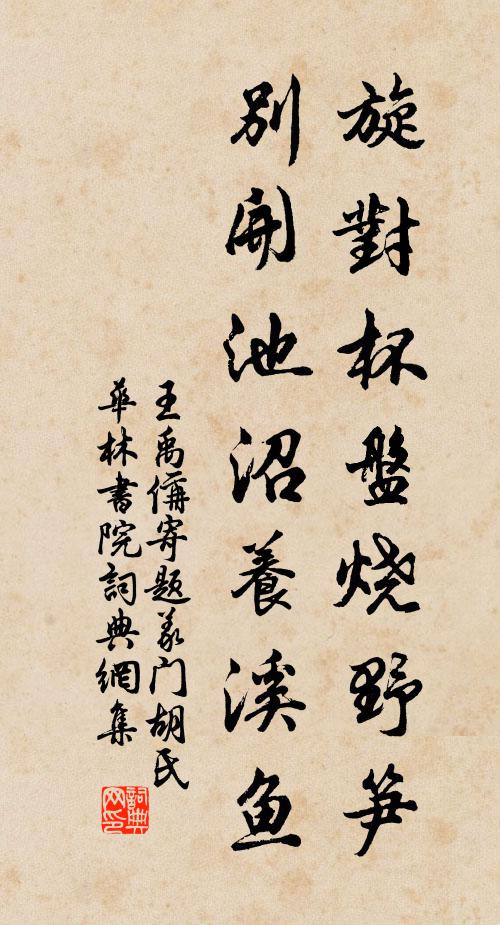 旋對杯盤燒野笋
別開池沼養溪魚
王禹偁寄題義門胡氏
華林書院詞典網集
詞典網印